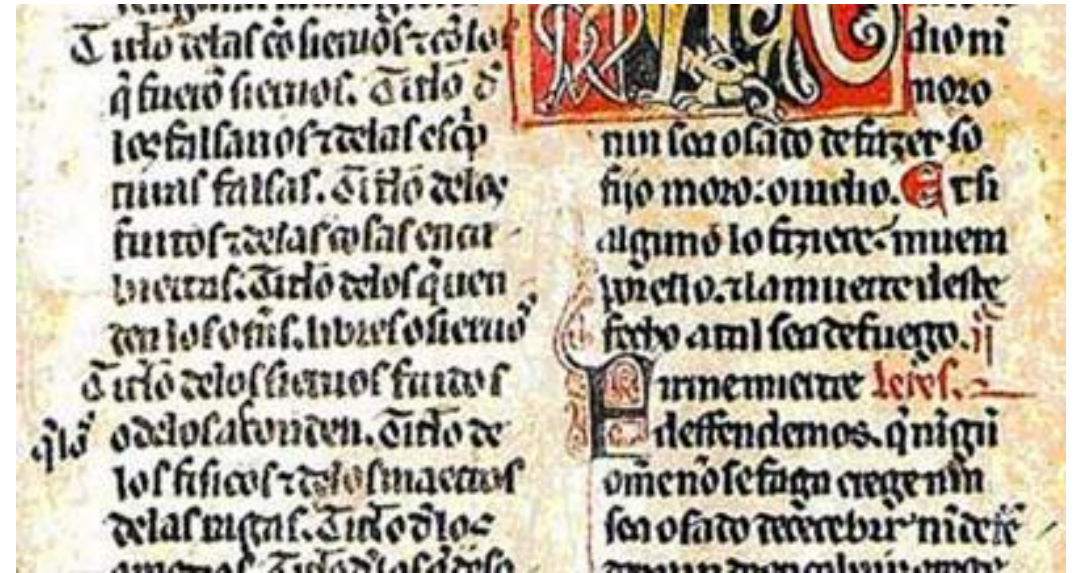 Titło delas cosieruos ⁊ colos
q̃ fuerõ sieruos. Titło d̃
los falsarios ⁊ delas escp̃
turas falsas. Titło delos
furtos ⁊ delas cosas encu
biertas. Titło delos q̃ uen
den los om̃s. libres o sieruos
Titło delos sieruos fuidos
q̃ los o delos asconden. Titło de
los fisicos ⁊ delos maestros
delas plagas. Titło d̃los
dioni
moro
nin sea osado de fazer so
fijo moro: o iudio. Et si
alguno lo fiziere: muera
por ello. ⁊ la muerte deste
fecho atal sea de fuego. ij
Firmemiente leies.
deffendemos. q̃ nĩgũ
om̃e nõ se faga erege nin
sea osado de recebir nĩ de fẽ